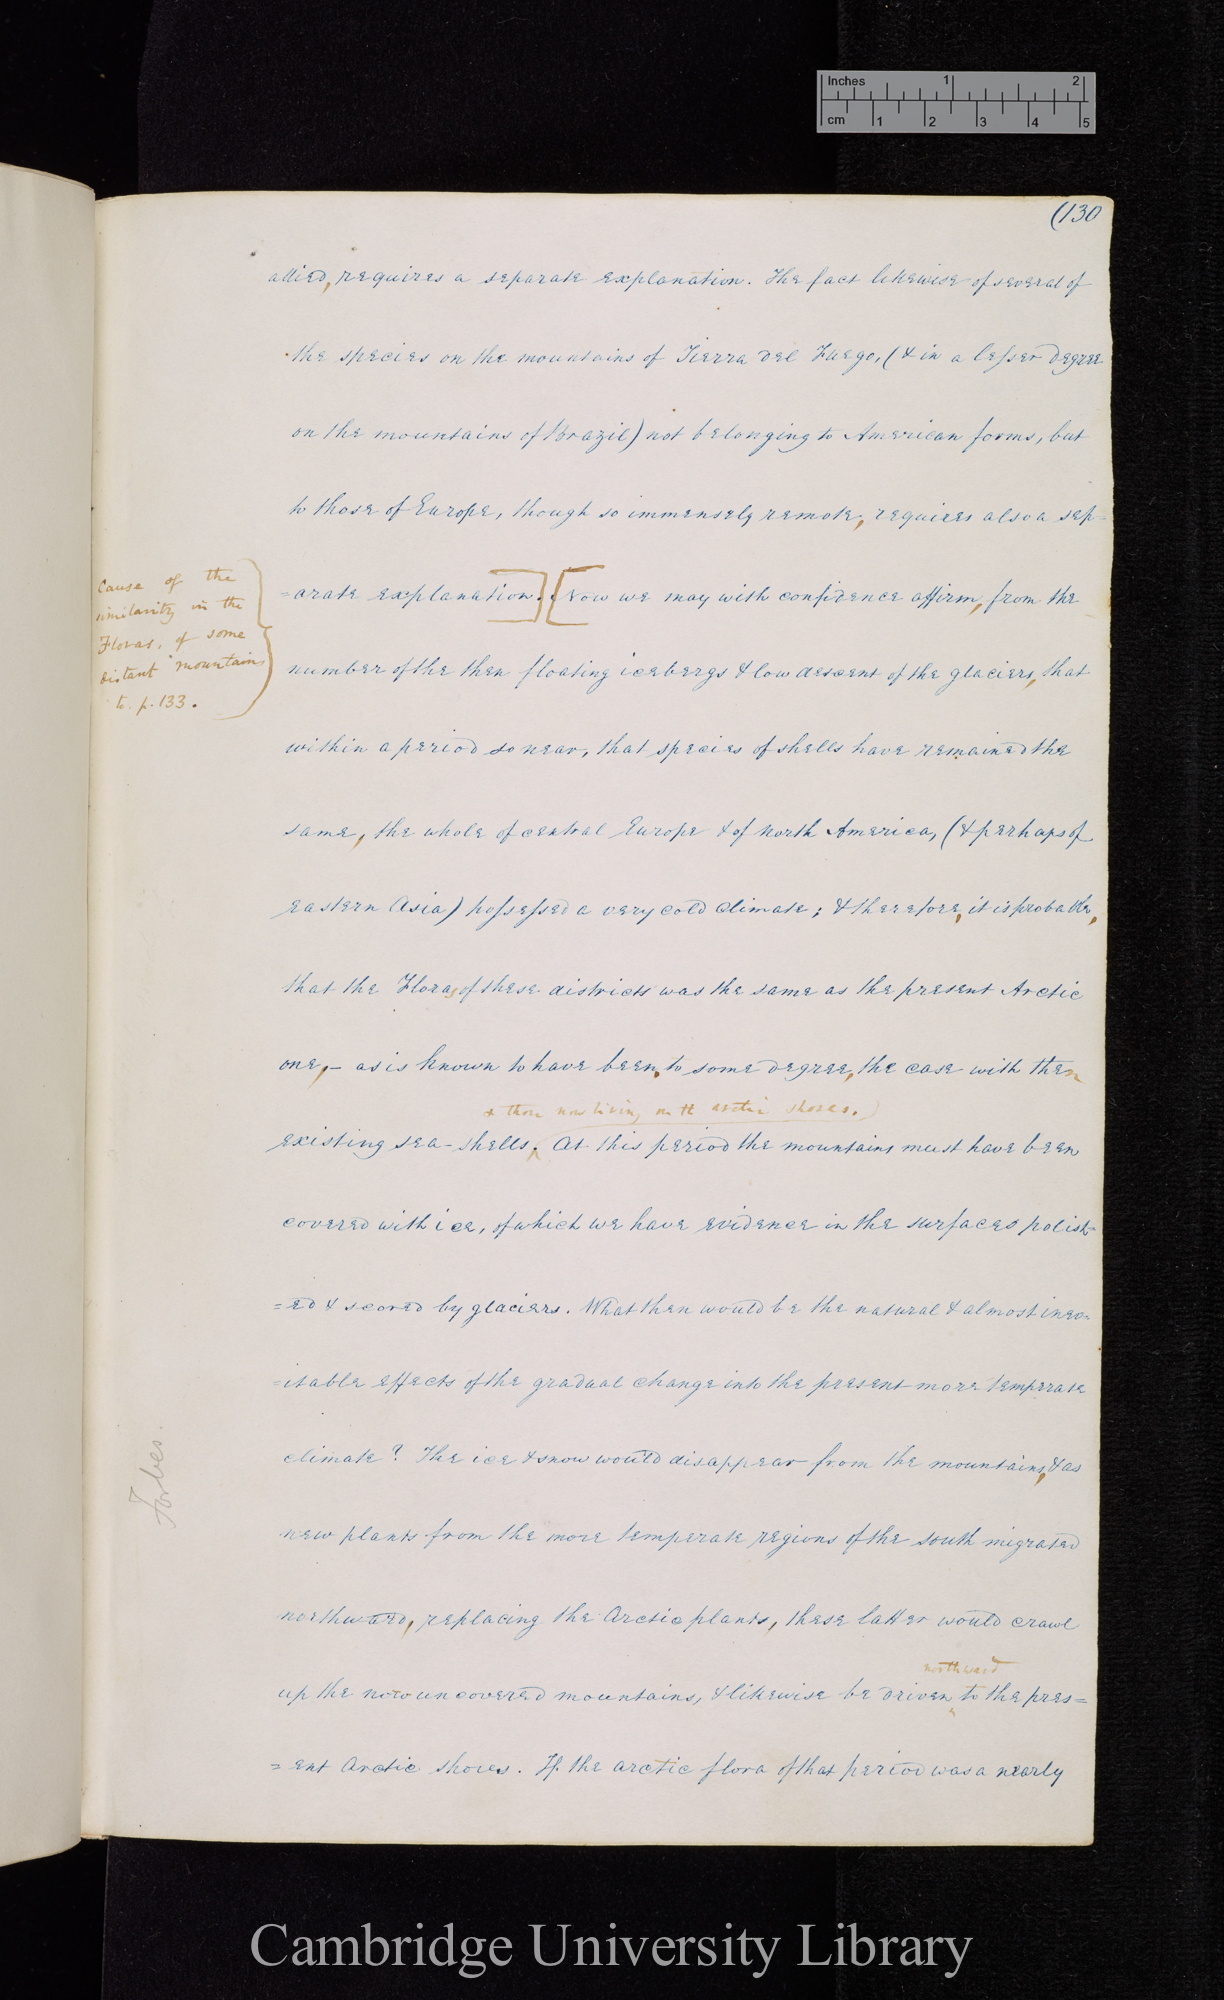 Inches 1 2
cm 1 2 3 4 5
(130
allied, requires a separate explanation. The fact likewise of several of
the species on the mountains of Tierra del Fuego, (& in a lesser degree
on the mountains of Brazil) not belonging to American forms, but
to those of Europe, though so immensely remote, requires also a sep-
=arate explanation.] [Now we may with confidence affirm, from the
Cause of the
similarity in the
Floras, of some
distant mountains
to p. 133.
number of the then floating icebergs & low descent of the glaciers, that
within a period so near, that species of shells have remained the
same, the whole of central Europe & of North America, (& perhaps of
eastern Asia) possessed a very cold climate; & therefore, it is probable,
that the Floras of these districts was the same as the present Arctic
one,– as is known to have been, to some degree, the case with then
& those now living on the arctic shores.)
existing sea-shells. At this period the mountains must have been
covered with ice, of which we have evidence in the surfaces polish-
=ed & scored by glaciers. What then would be the natural & almost inev-
=itable effects of the gradual change into the present more temperate
climate? The ice & snow would disappear from the mountains, & as
Forbes.
new plants from the more temperate regions of the south migrated
northward, replacing the Arctic plants, these latter would crawl
northward
up the now uncovered mountains, & likewise be driven to the pres=
=ent Arctic shores. If the arctic flora of that period was a nearly
Cambridge University Library